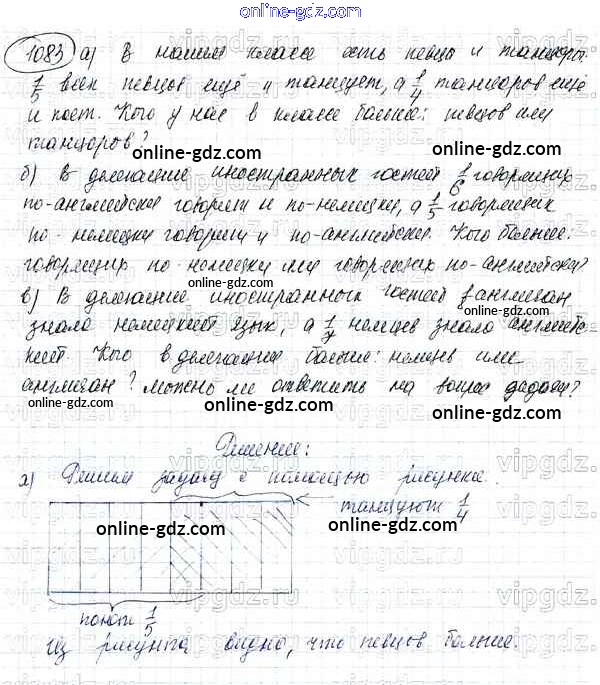 online-gdz.com
1083 а) В нашем классе есть певцы и танцоры.
1/5 всех певцов ещё и танцует, а 1/4 танцоров ещё
и поёт. Кого у нас в классе больше: певцов или
танцоров?
online-gdz.com online-gdz.com
б) В делегации иностранных гостей 1/6 говорящих
по-английски говорит и по-немецки, а 1/5 говорящих
по-немецки говорит и по-английски. Кого больше:
говорящих по-немецки или говорящих по-английски?
online-gdz.com online-gdz.com
в) В делегации иностранных гостей англичан
знало немецкий язык, а 1/7 немцев знало английс-
кий. Кого в делегации больше: немцев или
англичан? Можно ли ответить на вопрос задачи?
online-gdz.com online-gdz.com
Решение:
а) Решим задачу с помощью рисунка.
танцуют 1/4
online-gdz.com online-gdz.com
поют 1/5
Из рисунка видно, что певцов больше.
vipgdz.ru